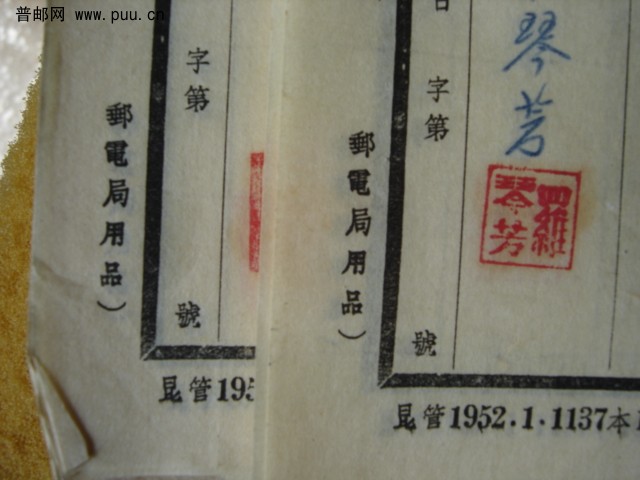 普邮网 www.puu.cn
字第
號
郵電局用品）
昆管195
琴芳
字第
號
郵電局用品）
琴芳
昆管1952.1.1137本